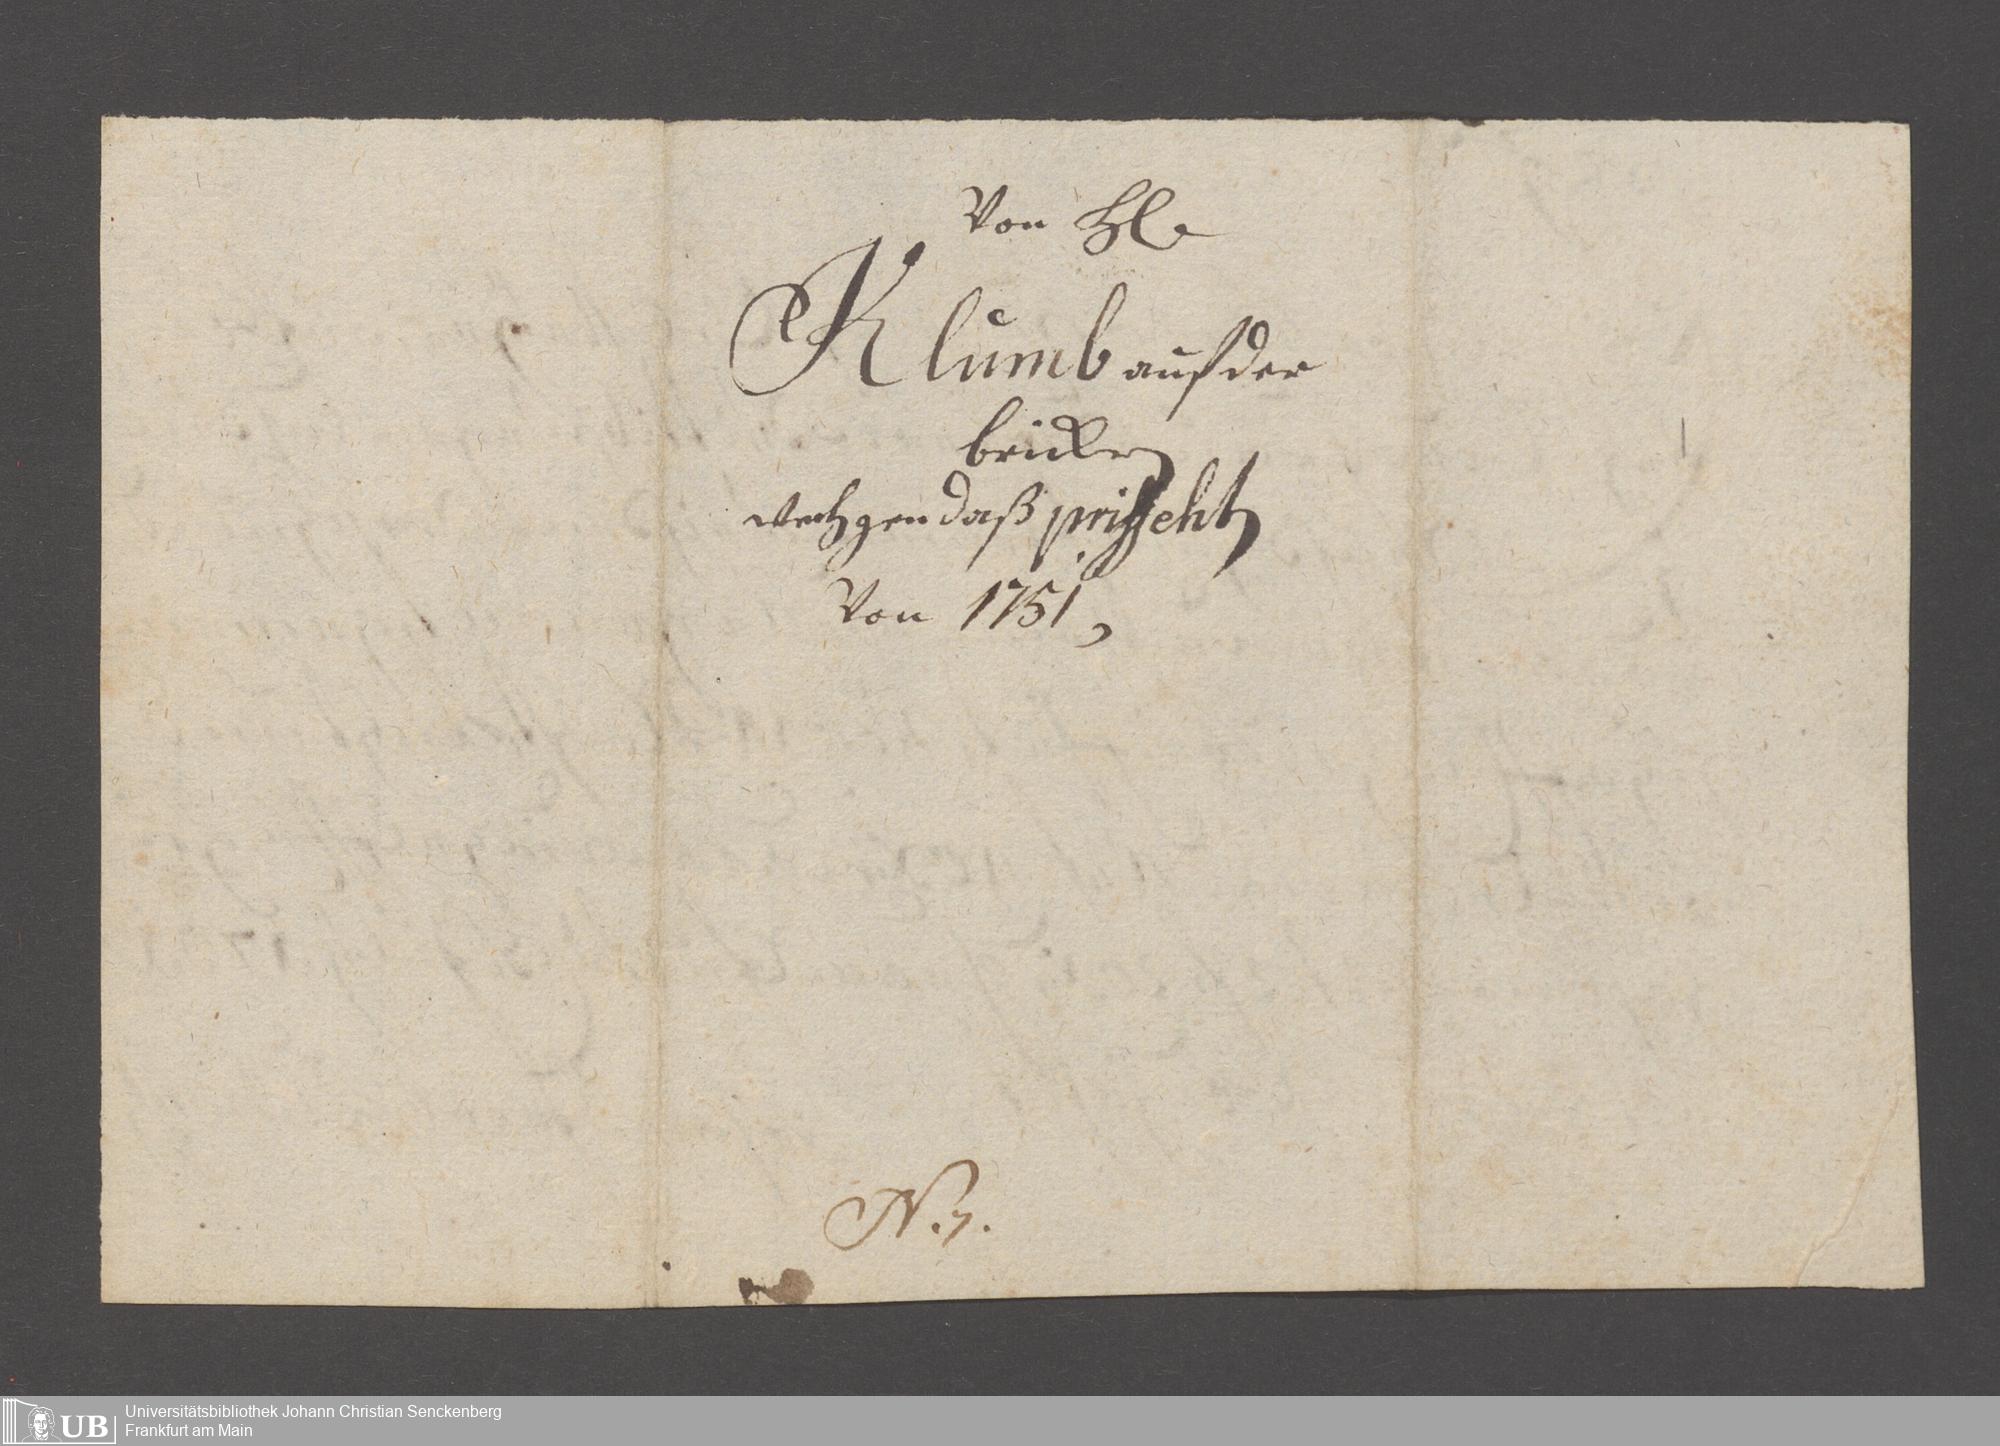 Von H
Klumb auf der
bricken
wechgen daß prisseht
Von 1751,
N. 7.
UB
Universitätsbibliothek Johann Christian Senckenberg
Frankfurt am Main